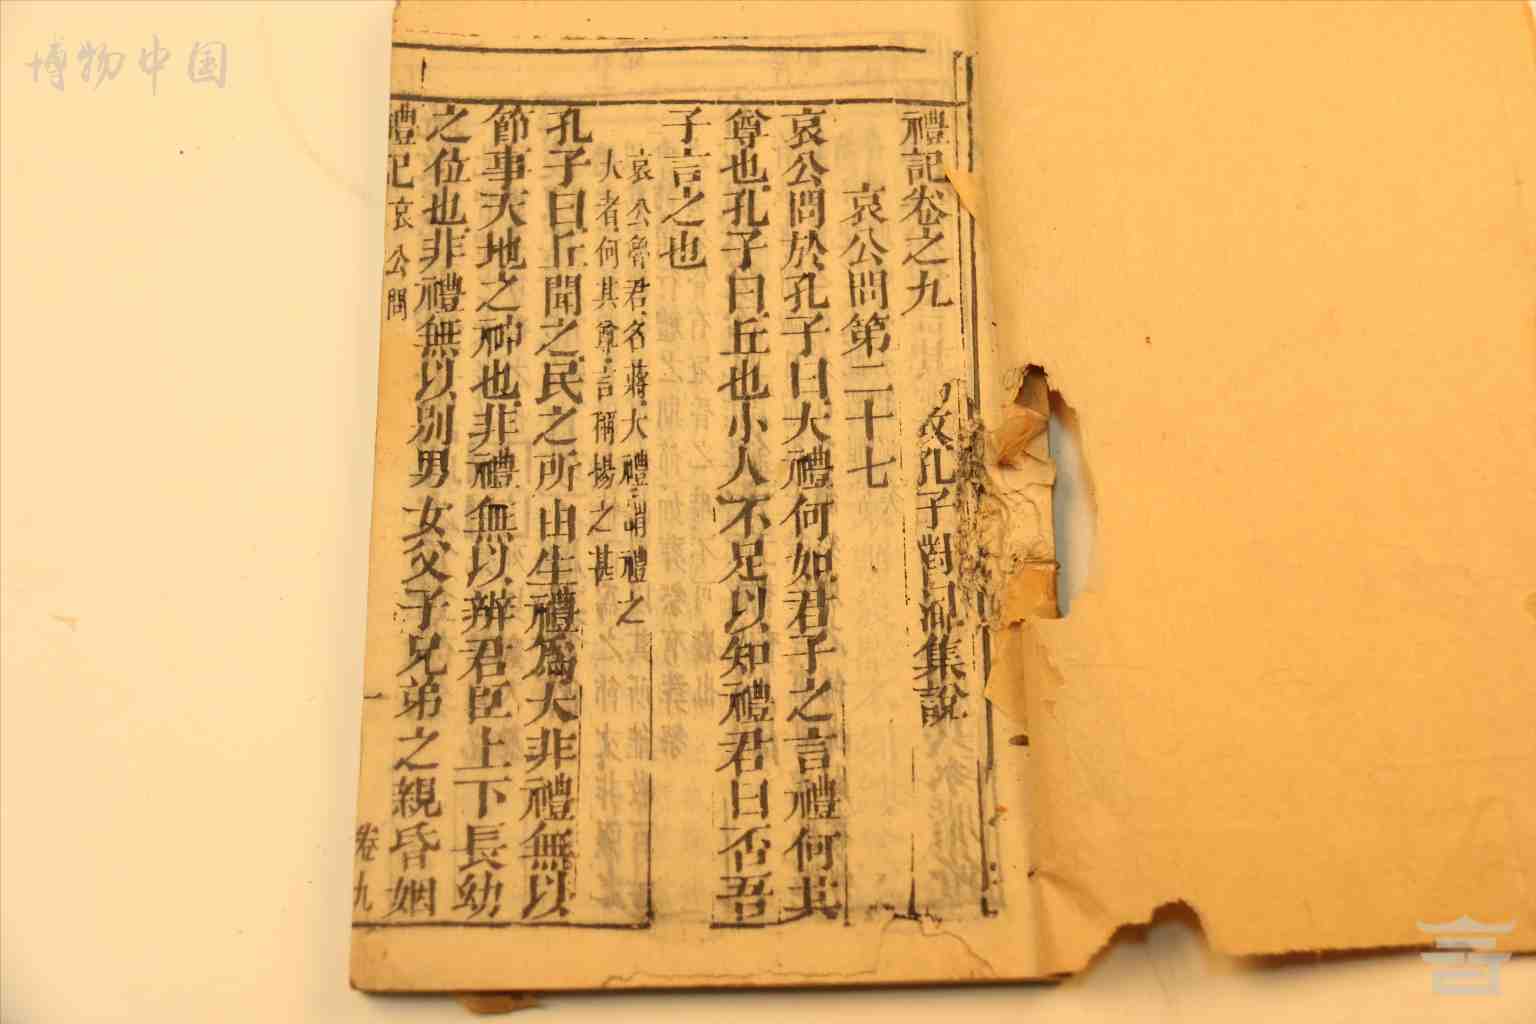 博物中国
禮記卷之九
孔子對 集說
哀公問第二十七
哀公問於孔子曰大禮何如君子之言禮何其
尊也孔子曰丘也小人不足以知禮君曰否吾
子言之也
哀公魯君名蔣大禮謂禮之
大者何其尊言稱揚之甚
孔子曰丘聞之民之所由生禮爲大非禮無以
節事天地之神也非禮無以辨君臣上下長幼
之位也非禮無以別男女父子兄弟之親昏姻
禮記 哀公問 一 卷九